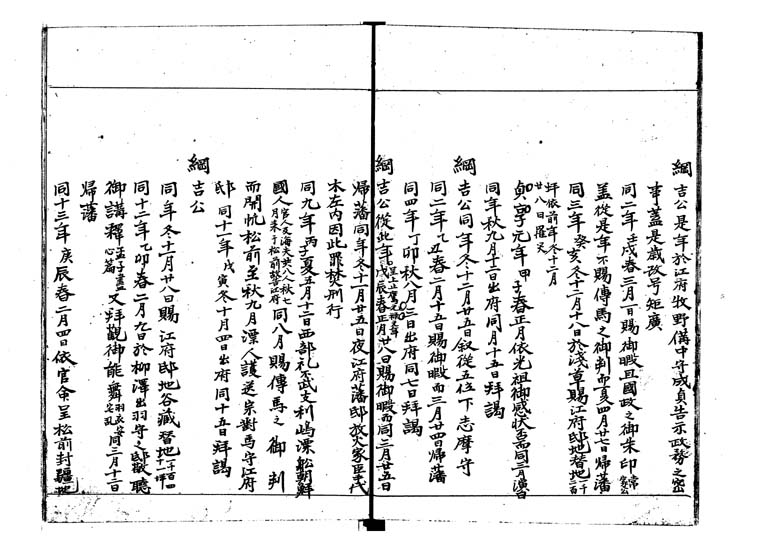 綱吉公是年於江府牧野備中守成貞告示政務之密
事蓋是歳改号矩廣
同二年壬戌春三月一日賜御暇且國政之御朱印常憲公
蓋從是年不賜傳馬之御判而夏四月廿七日帰藩
同三年癸亥冬十二月十八日於浅草賜江府邸地替地
坪依前年冬十二月
廿八日罹災
貞享元年甲子春正月依光祖御感状 而同三月
同年秋九月十二日出府同月十五日拜謁
綱吉公同年冬十二月廿五日叙從五位下志摩守
同二年乙丑春二月十五日賜御暇而三月廿四日帰藩
同四年丁卯秋八月三日出府同七日拜謁
綱吉公從此年 戊辰春正月廿八日賜御暇而同三月廿五日
帰藩同年冬十一月廿五日夜江府藩邸放火家臣
木左内因此罪焚刑行
同九年丙子夏五月十二日西部礼文利嶋漂船朝鮮
國人官人 八人秋七月来于松前 江府同八月賜傳馬之御判
而開帆松前至秋九月漂人護送宗對馬守江府
邸同十一年戊寅冬十月四日出府同十五日拜謁
綱吉公
同年冬十二月廿八日賜江府邸地谷藏替地
同十二年乙卯春二月九日於柳澤出羽守之邸敬聴
御講釋孟子盡心篇又拜観御能舞羽衣 乱同三月十二日
帰藩
同十三年庚辰春二月四日依官命呈松前封疆地